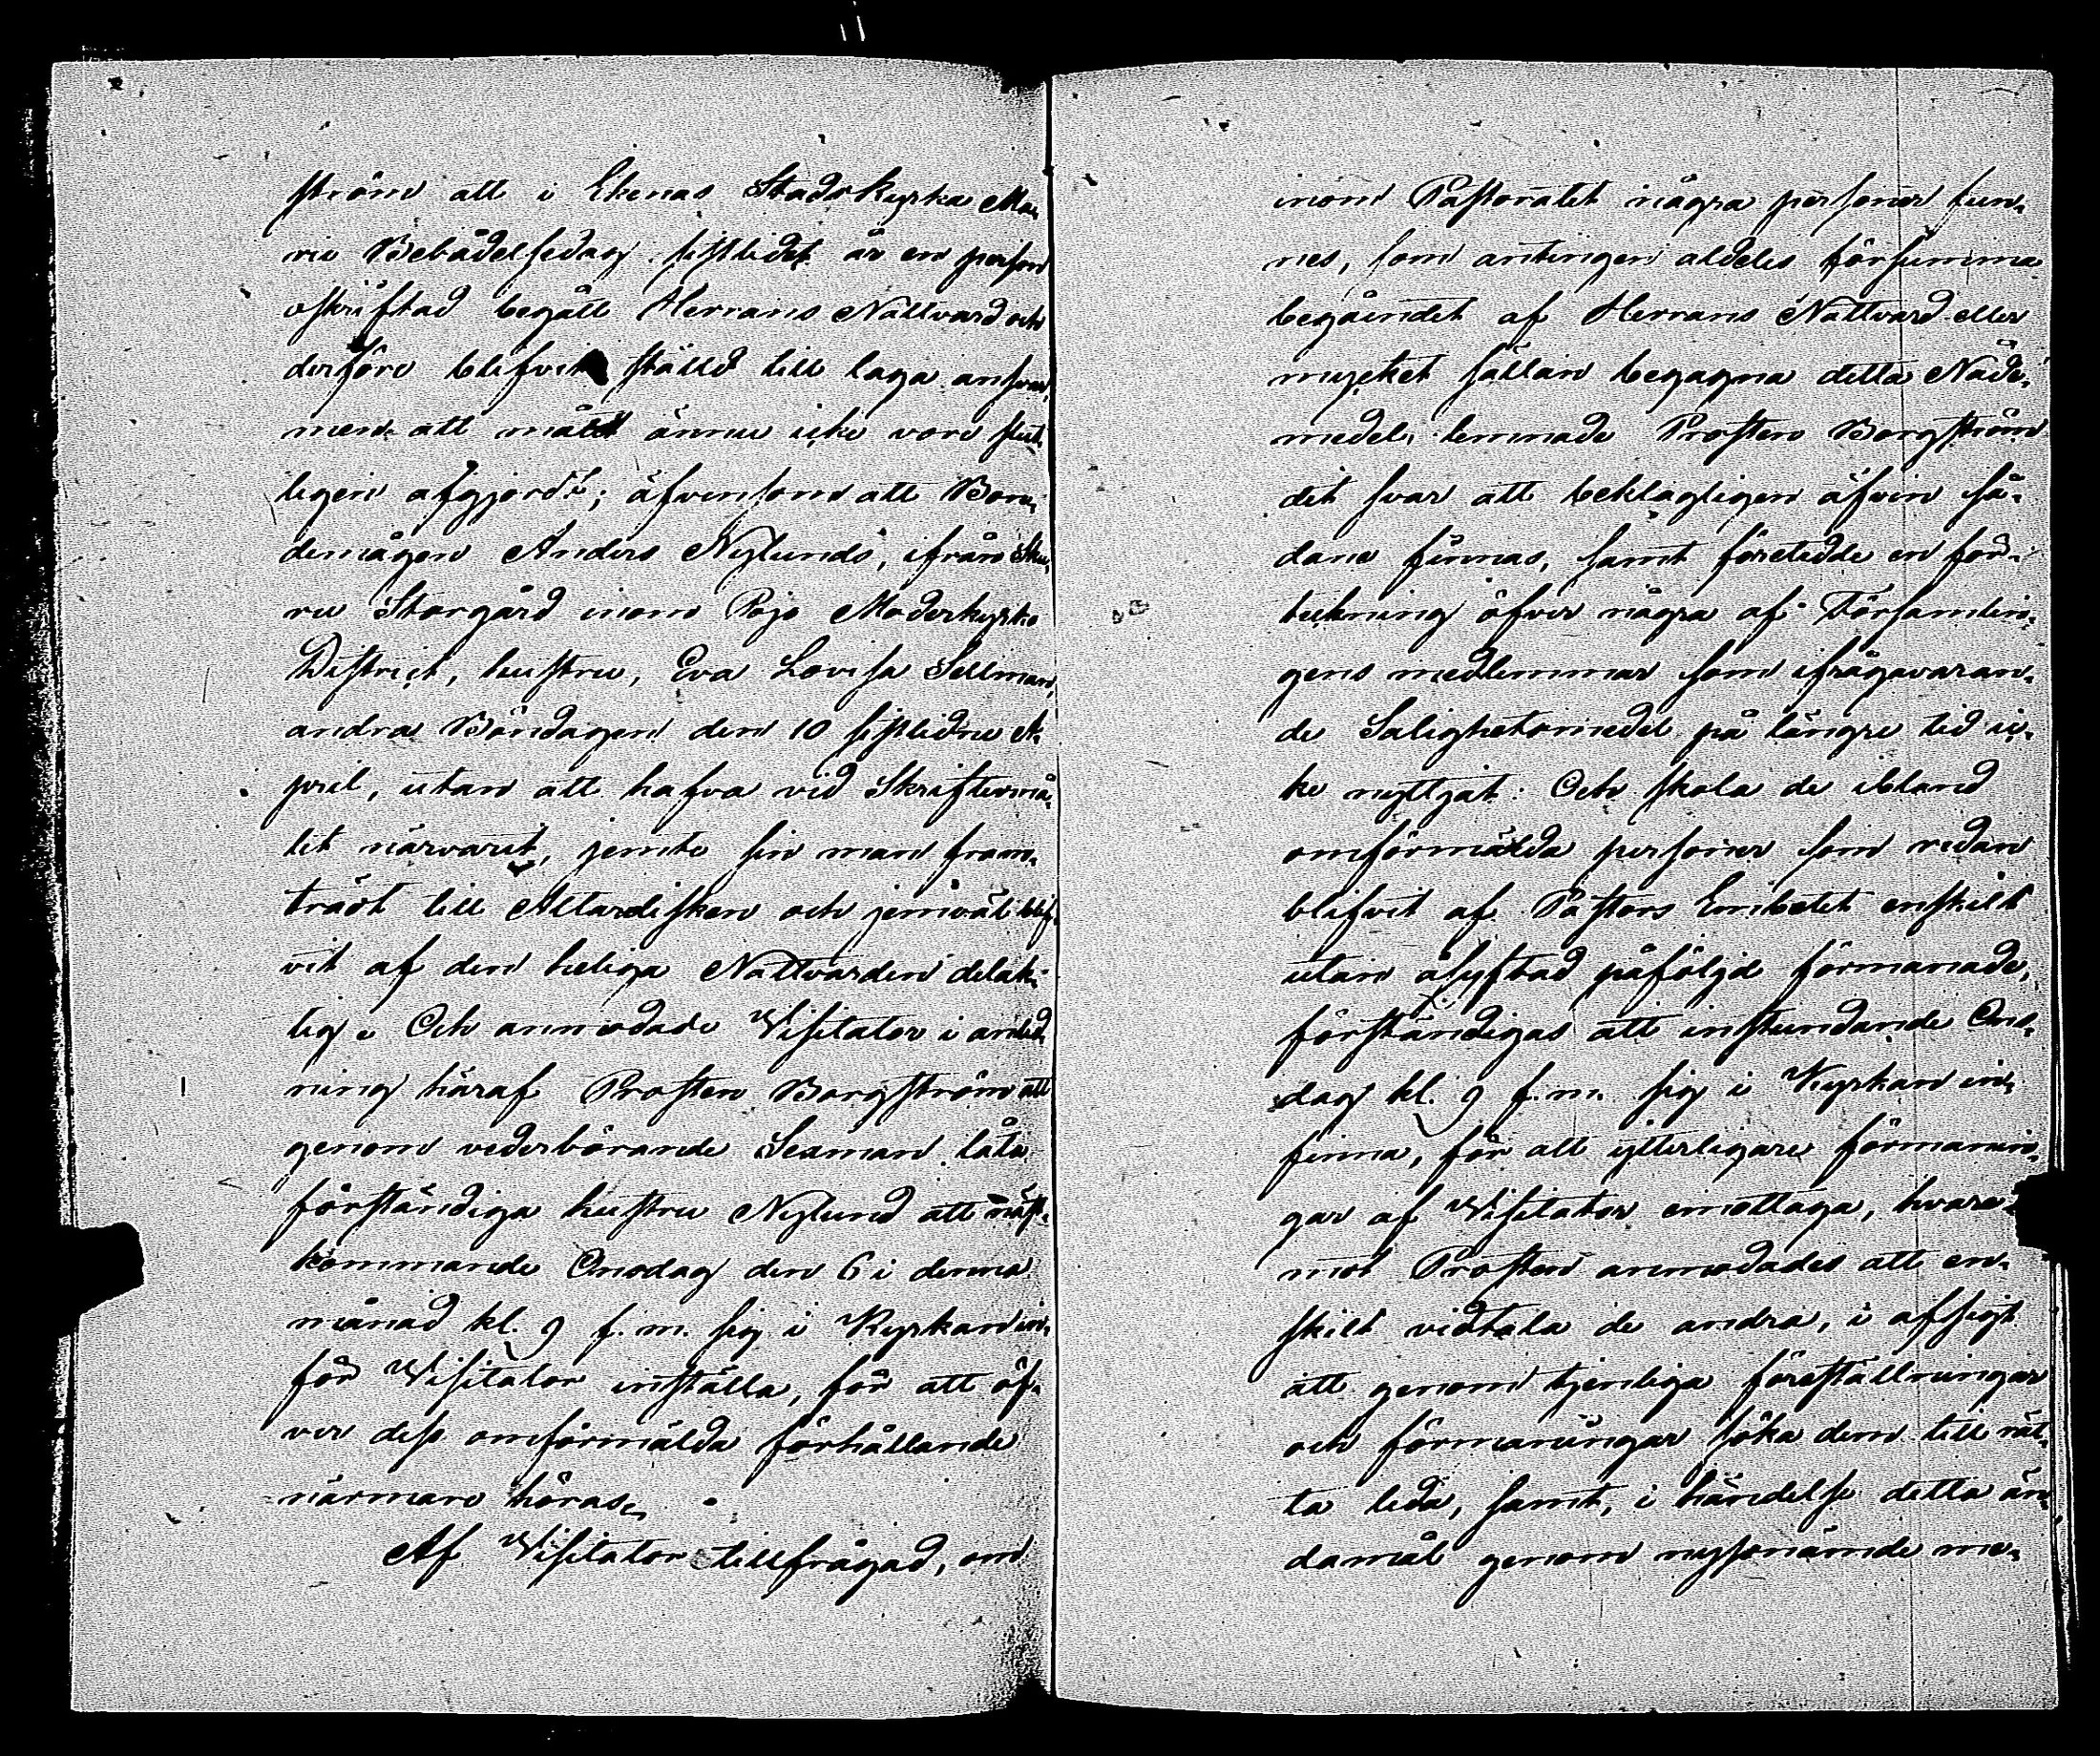 ström att i Ekenäs Stads Kyrka Ma-
rie Bebådelsedag sistlidet år en person
oskriftad begått Herrans Nattvard och
derföre blifvit ställd till laga answar,
men att målet ännu icke vore slut-
ligen afgjordt; äfvensom att Bon-
demågen Anders Nylunds, ifrån Sku-
ru Storgård inom Pojo Moderkyrko
District, hustru, Eva Lovisa Sellman,
andra Böndagen den 10 sistlidne A-
pril, utan att hafva vid Skriftermå-
let närvarit, jemte sin man fram-
trädt till Altardisken och jemväl blif-
vit af den heliga Nattvarden delak-
tig. Och anmodade Visitator i anled-
ning häraf Prosten Borgström att
genom vederbörande Sexman låta
förständiga hustru Nylund att näst-
kommande Onsdag den 6 i denna
månad kl. 9 f. m. sig i Kyrkan in-
för Visitator inställa, för att öf-
ver dess omförmälda förhållande
närmare höras.
Af Visitator tillfrågad, om
inom Pastoratet några personer fun-
nes, som antingen aldeles försumma
begåendet af Herrans Nattvard eller
mycket sällan begagna detta Nåde-
medel, lemnade Prosten Borgström
det svar att beklagligen äfven så-
dane finnas, samt företedde en för-
teckning öfver några af Församlin-
gens medlemmar som ifrågavaran-
de Salighetsmedel på längre tid ic-
ke nyttjat. Och skola de ibland
omförmälda personer som redan
blifvit af Pastors Embetet enskilt
utan åsyftad påföljd förmanade,
förständigas att instundande Ons-
dag kl. 9 f. m. sig i Kyrkan in-
finna, för att ytterligare förmanin-
gar af Visitator emottaga, hvare-
mot Prosten anmodades att en-
skilt vidtala de andra, i afsigt
att genom tjenliga föreställningar
och förmaningar söka dem till rät-
ta leda, samt, i händelse detta än-
damål genom nyssnämde me-